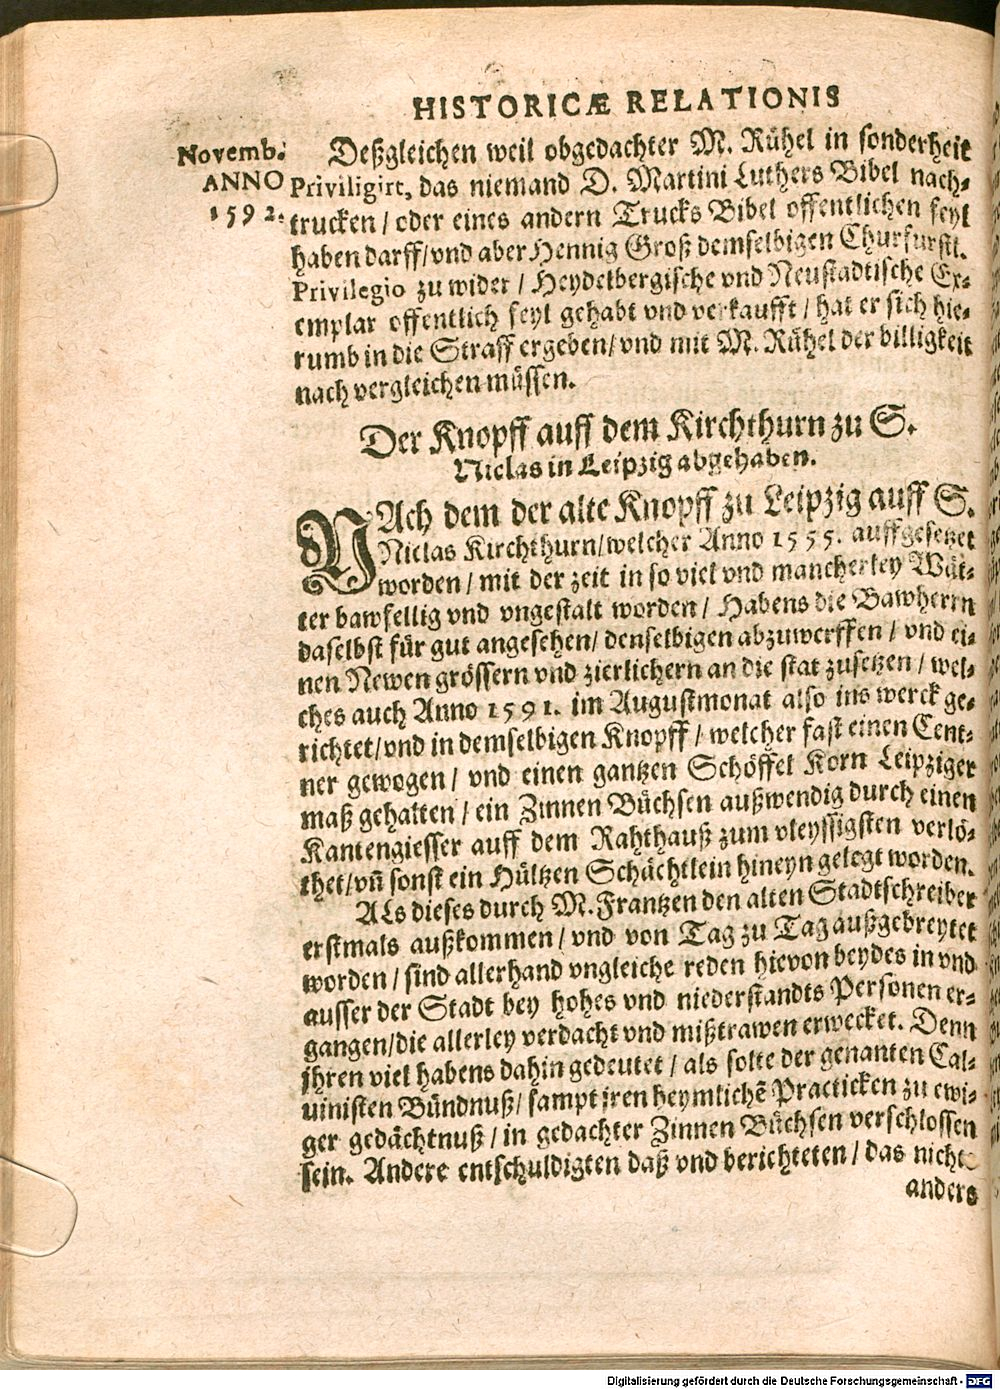 HISTORICÆ RELATIONIS
Novemb.
ANNO
1592.
Deßgleichen weil obgedachter M. Rühel in sonderheit
Priviligirt, das niemand D. Martini Luthers Bibel nach-
trucken / oder eines andern Trucks Bibel offentlichen feyl
haben darff / vnd aber Hennig Groß demselbigen Churfürstl.
Privilegio zu wider / Heydelbergische vnd Neustadtische Ex-
emplar offentlich feyl gehabt vnd verkaufft / hat er sich hie-
rumb in die Straff ergeben / vnd mit M. Rühel der billigkeit
nach vergleichen müssen.
Der Knopff auff dem Kirchthurn zu S.
Niclas in Leipzig abgehaben.
NAch dem der alte Knopff zu Leipzig auff S.
Niclas Kirchthurn / welcher Anno 1555. auffgesetzet
worden / mit der zeit in so viel vnd mancherley Wät-
ter bawfellig vnd vngestalt worden / Habens die Bawherrn
daselbst für gut angesehen / denselbigen abzuwerffen / vnd ei-
nen Newen grössern vnd zierlichern an die stat zusetzen / wel-
ches auch Anno 1591. im Augustmonat also ins werck ge-
richtet / vnd in demselbigen Knopff / welcher fast einen Cent-
ner gewogen / vnd einen gantzen Schöffel Korn Leipziger
maß gehalten / ein Zinnen Büchsen außwendig durch einen
Kantengiesser auff dem Rahthauß zum vleyssigsten verlö-
thet / vñ sonst ein Hültzen Schächtlein hineyn gelegt worden.
ALs dieses durch M. Frantzen den alten Stadtschreiber
erstmals außkommen / vnd von Tag zu Tag außgebreytet
worden / sind allerhand vngleiche reden hievon beydes in vnd
ausser der Stadt bey hohes vnd niederstandts Personen er-
gangen / die allerley verdacht vnd mißtrawen erwecket. Denn
jhren viel habens dahin gedeutet / als solte der genanten Cal-
uinisten Bündnuß / sampt jren heymlichẽ Practicken zu ewi-
ger gedächtnuß / in gedachter Zinnen Büchsen verschlossen
sein. Andere entschuldigten daß vnd berichteten / das nichts
anders
Digitalisierung gefördert durch die Deutsche Forschungsgemeinschaft - DFG